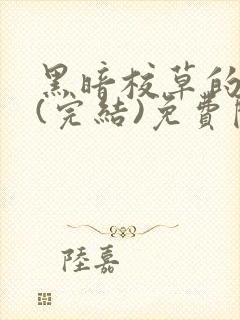 黑暗校草的
(完結)免費
陸嘉